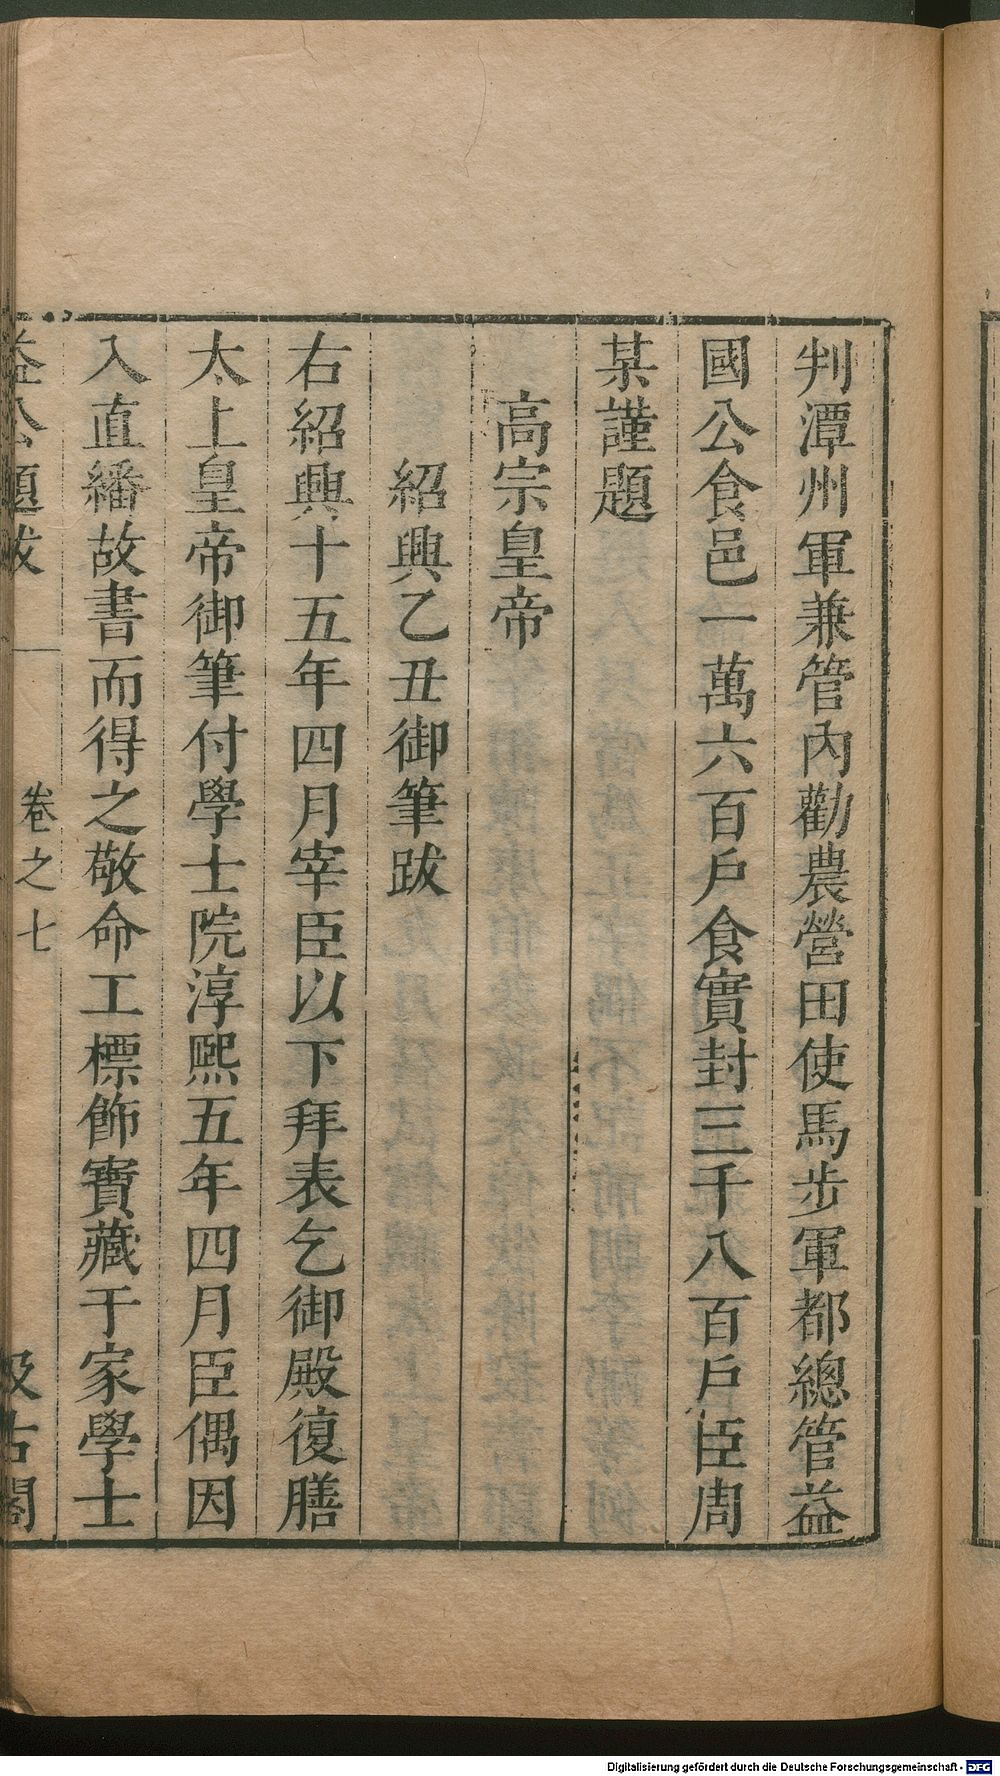 判潭州軍兼管內勸農營田使馬步軍都總管益
國公食邑一萬六百戶食實封三千八百戶臣周
某謹題
高宗皇帝
紹興乙丑御筆跋
右紹興十五年四月宰臣以下拜表乞御殿復膳
太上皇帝御筆付學士院淳熙五年四月臣偶因
入直繙故書而得之敬命工標飾寶藏于家學士
益公題跋
卷之七
汲古閣
Digitalisierung gefördert durch die Deutsche Forschungsgemeinschaft - DFG